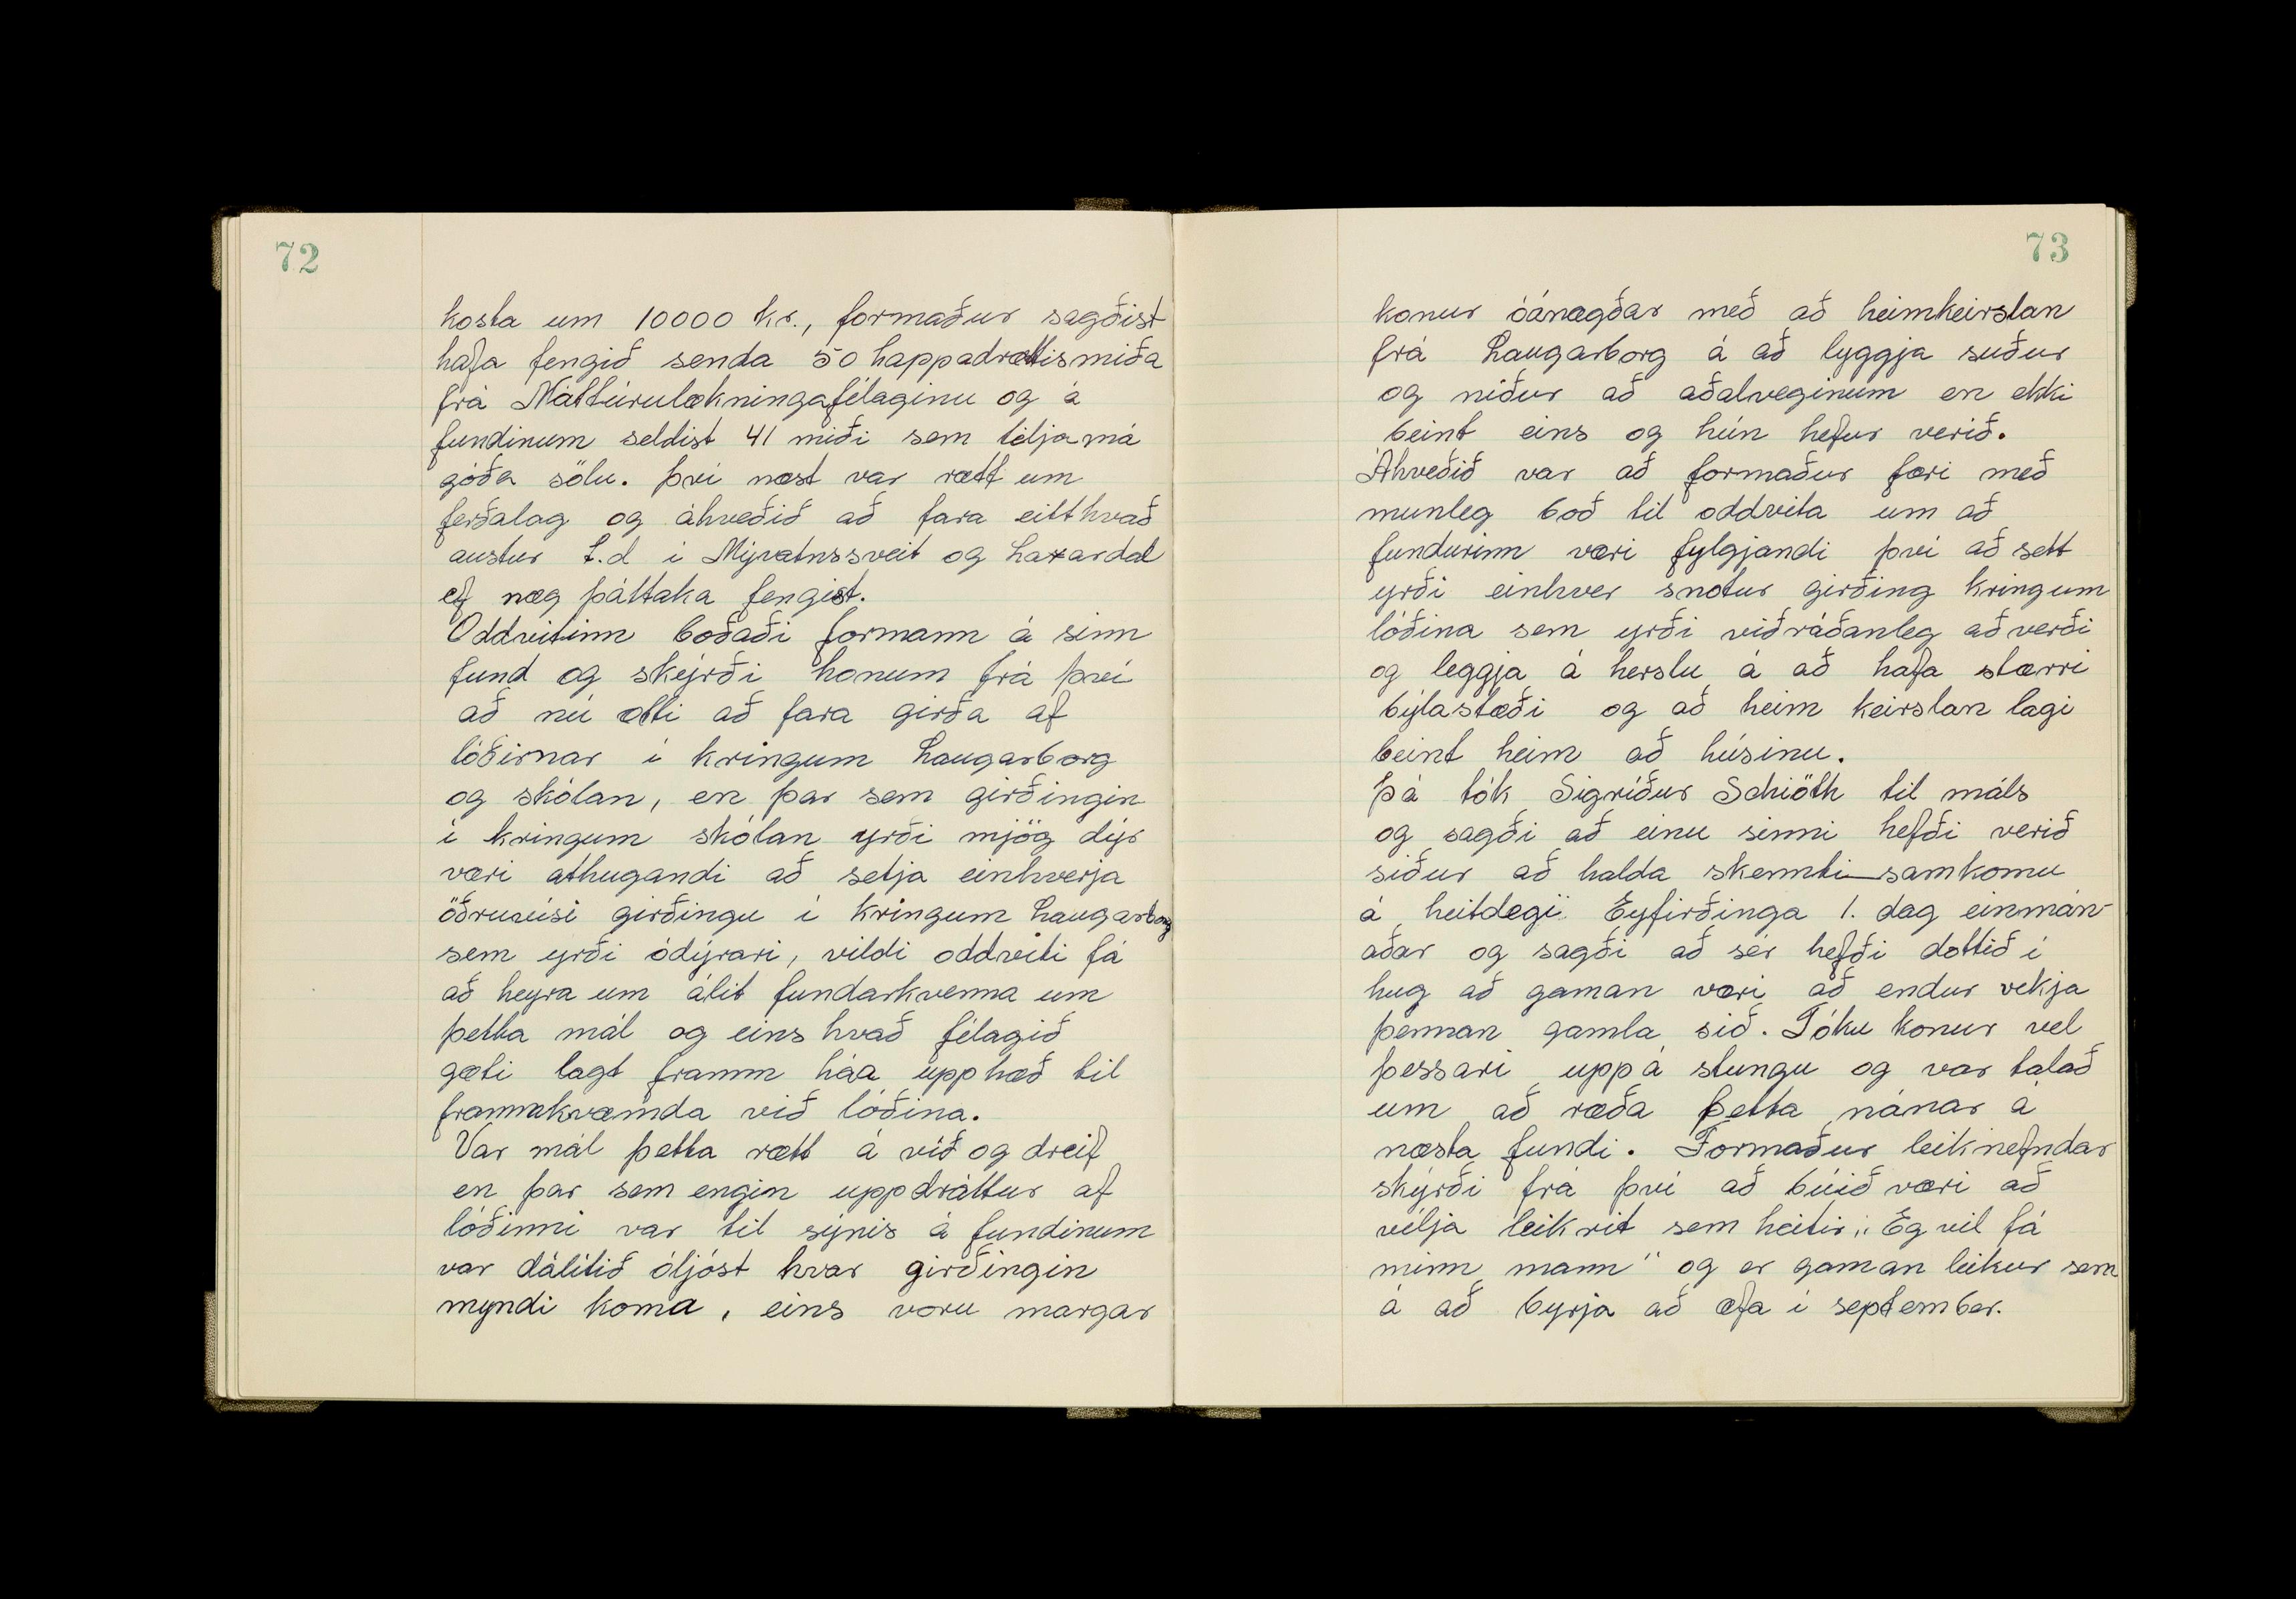 72
kosta um 10000 kr., formaður sagðist
hafa fengið senda 50 happadrættismiða
frá Náttúrulækningafélaginu og á
fundinum seldist 41 miði sem telja má
góða sölu. Því næst var rætt um
ferðalag og ákveðið að fara eitthvað
austur t.d í Mývatnssveit og Laxardal
ef næg þáttaka fengist.
Oddvitinn boðaði formann á sinn
fund og skýrði honum frá því
að nú ætti að fara girða af
lóðirnar í kringum Laugarborg
og skólan, en þar sem girðingin
í kringum skólan yrði mjög dýr
væri athugandi að setja einhverja
öðruvísi girðingu í kringum Laugarborg
sem yrði ódýrari, vildi oddviti fá
að heyra um álit fundarkvenna um
þetta mál og eins hvað félagið
gæti lagt framm háa upphæð til
frammkvæmda við lóðina.
Var mál þetta rætt á víð og dreif
en þar sem engin uppdráttur af
lóðinni var til sýnis á fundinum
var dálítið óljóst hvar girðingin
myndi koma, eins voru margar
73
konur óánægðar með að heimkeirslan
frá Laugarborg á að lyggja suður
og niður að aðalveginum en ekki
beint eins og hún hefur verið.
Ákveðið var að formaður færi með
munleg boð til oddvita um að
fundurinn væri fylgjandi því að sett
yrði einhver snotur girðing kringum
lóðina sem yrði viðráðanleg að verði
og leggja á herslu á að hafa stærri
býlastæði og að heim keirslan lægi
beint heim að húsinu.
Þá tók Sigríður Schiöth til máls
og sagði að einu sinni hefði verið
siður að halda skemmti-samkomu
á heitdegi Eyfirðinga 1. dag einmán-
aðar og sagði að sér hefði dottið í
hug að gaman væri að endur vekja
þennan gamla sið. Tóku konur vel
þessari uppá stungu og var talað
um að ræða þetta nánar á
næsta fundi. Formaður leiknefndar
skýrði frá því að búið væri að
vélja leikrit sem heitir „Eg vil fá
minn mann" og er gaman leikur sem
á að byrja að æfa í september.